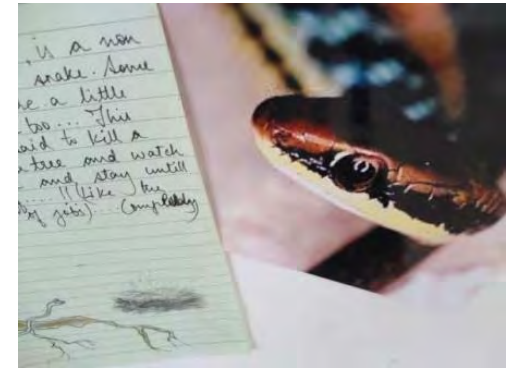 , is a non
snake. Some
a little
too.... This
said to kill a
tree and watch
and stay untill
....!! (Like the
of jits).... Completely